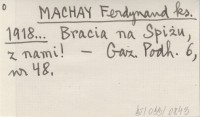 MACHAY Ferdynand ks.
1918... Bracia na Spiżu,
z nami! — Gaz. Podh. 6,
nr 48.